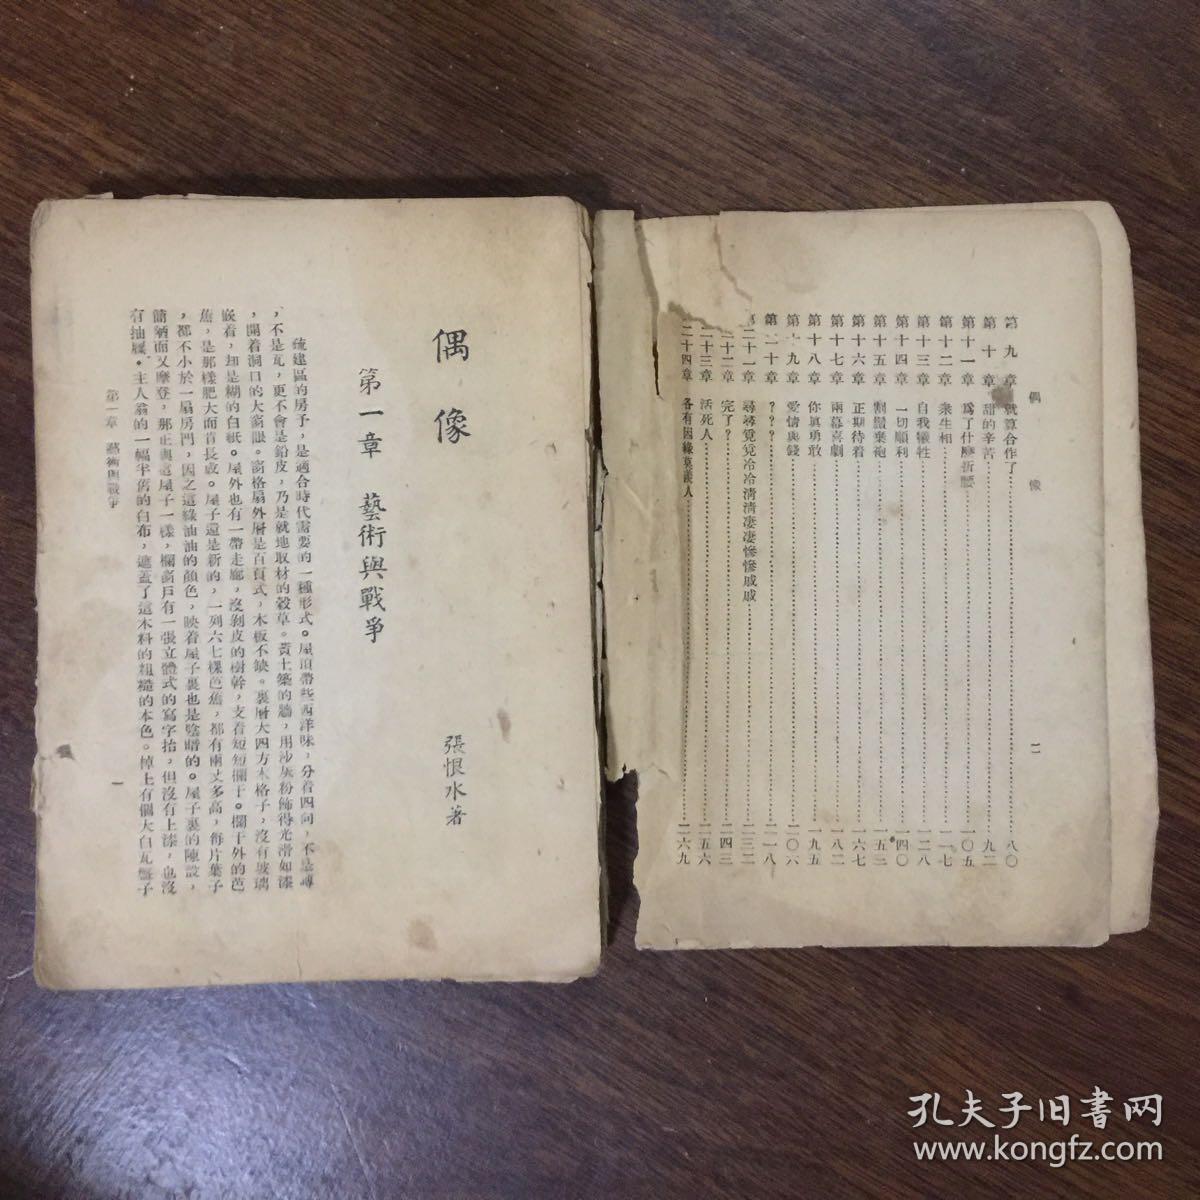 偶像
二
第九章 就算合作了……八〇
第十章 甜的辛苦……九二
第十一章 爲了什麼折腰……一〇五
第十二章 衆生相……一一七
第十三章 自我犧牲……一二八
第十四章 一切順利……一四〇
第十五章 割鬚棄袍……一五二
第十六章 正期待着……一六七
第十七章 兩幕喜劇……一八二
第十八章 你眞勇敢……一九五
第十九章 愛情與錢……二〇六
第二十章 ？？？……二一八
第二十一章 尋尋覓覓冷冷清清凄凄慘慘戚戚……二三二
二十二章 完了？……二四三
二十三章 活死人……二五六
二十四章 各有因緣莫羨人……二六九
偶像
張恨水著
第一章 藝術與戰爭
疏建區的房子，是適合時代需要的一種形式。屋頂帶些西洋味，分着四向，不是磚
，不是瓦，更不會是鉛皮，乃是就地取材的穀草。黃土築的牆，用沙灰粉飾得光滑如漆
，開着洞口的大窗眼。窗格扇外層是百頁式，木板不缺。裏層大四方木格子，沒有玻璃
嵌着，却是糊的白紙。屋外也有一帶走廊，沒剝皮的樹幹，支着短短欄干。欄干外的芭
蕉，是那樣肥大而肯長成。屋子還是新的，一列六七棵芭蕉，都有兩丈多高，每片葉子
，都不小於一扇房門，因之這綠油油的顏色，映着屋子裏也是陰暗的。屋子裏的陳設，
簡陋而又摩登，那正與這屋子一樣，欄窗戶有一張立體式的寫字抬，但沒有上漆，也沒
有抽屜。主人翁的一幅半舊的白布，遮蓋了這木料的粗糙的本色。棹上有個大白瓦盤子
第一章 藝術與戰爭
一
孔夫子旧书网
www.kongfz.com